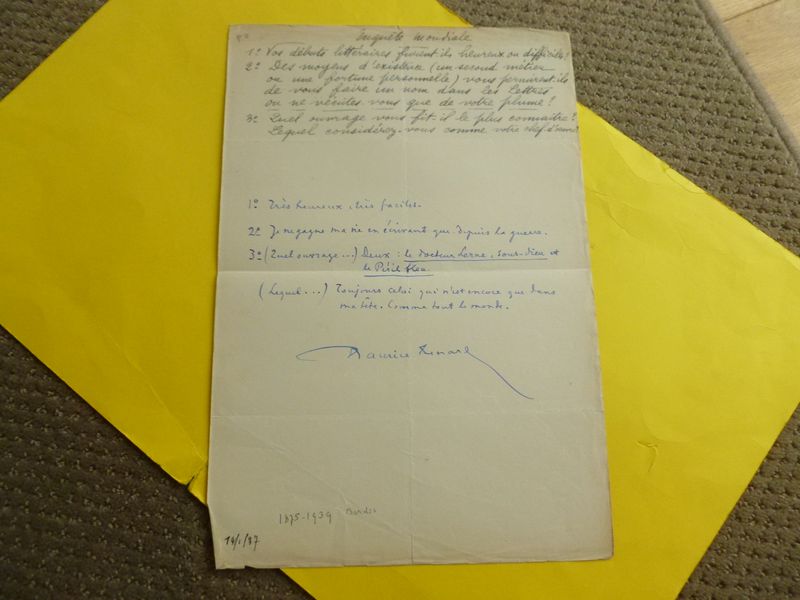 Enquête Mondiale
1º Vos débuts littéraires furent-ils heureux ou difficiles?
2º Des moyens d'existence (un second métier
ou une fortune personnelle) vous permirent-ils
de vous faire un nom dans les lettres
ou ne vécûtes-vous que de votre plume?
3º Quel ouvrage vous fit-il le plus connaître?
Lequel considérez-vous comme votre chef d'œuvre?
1º Très heureux, très faciles.
2º Je ne gagne ma vie en écrivant que depuis la guerre.
3º (Quel ouvrage...) Deux : le Docteur Lerne, sous-dieu et
le Péril bleu.
(Lequel...) Toujours celui qui n'est encore que dans
ma tête. Comme tout le monde.
Maurice Renard
1875-1939